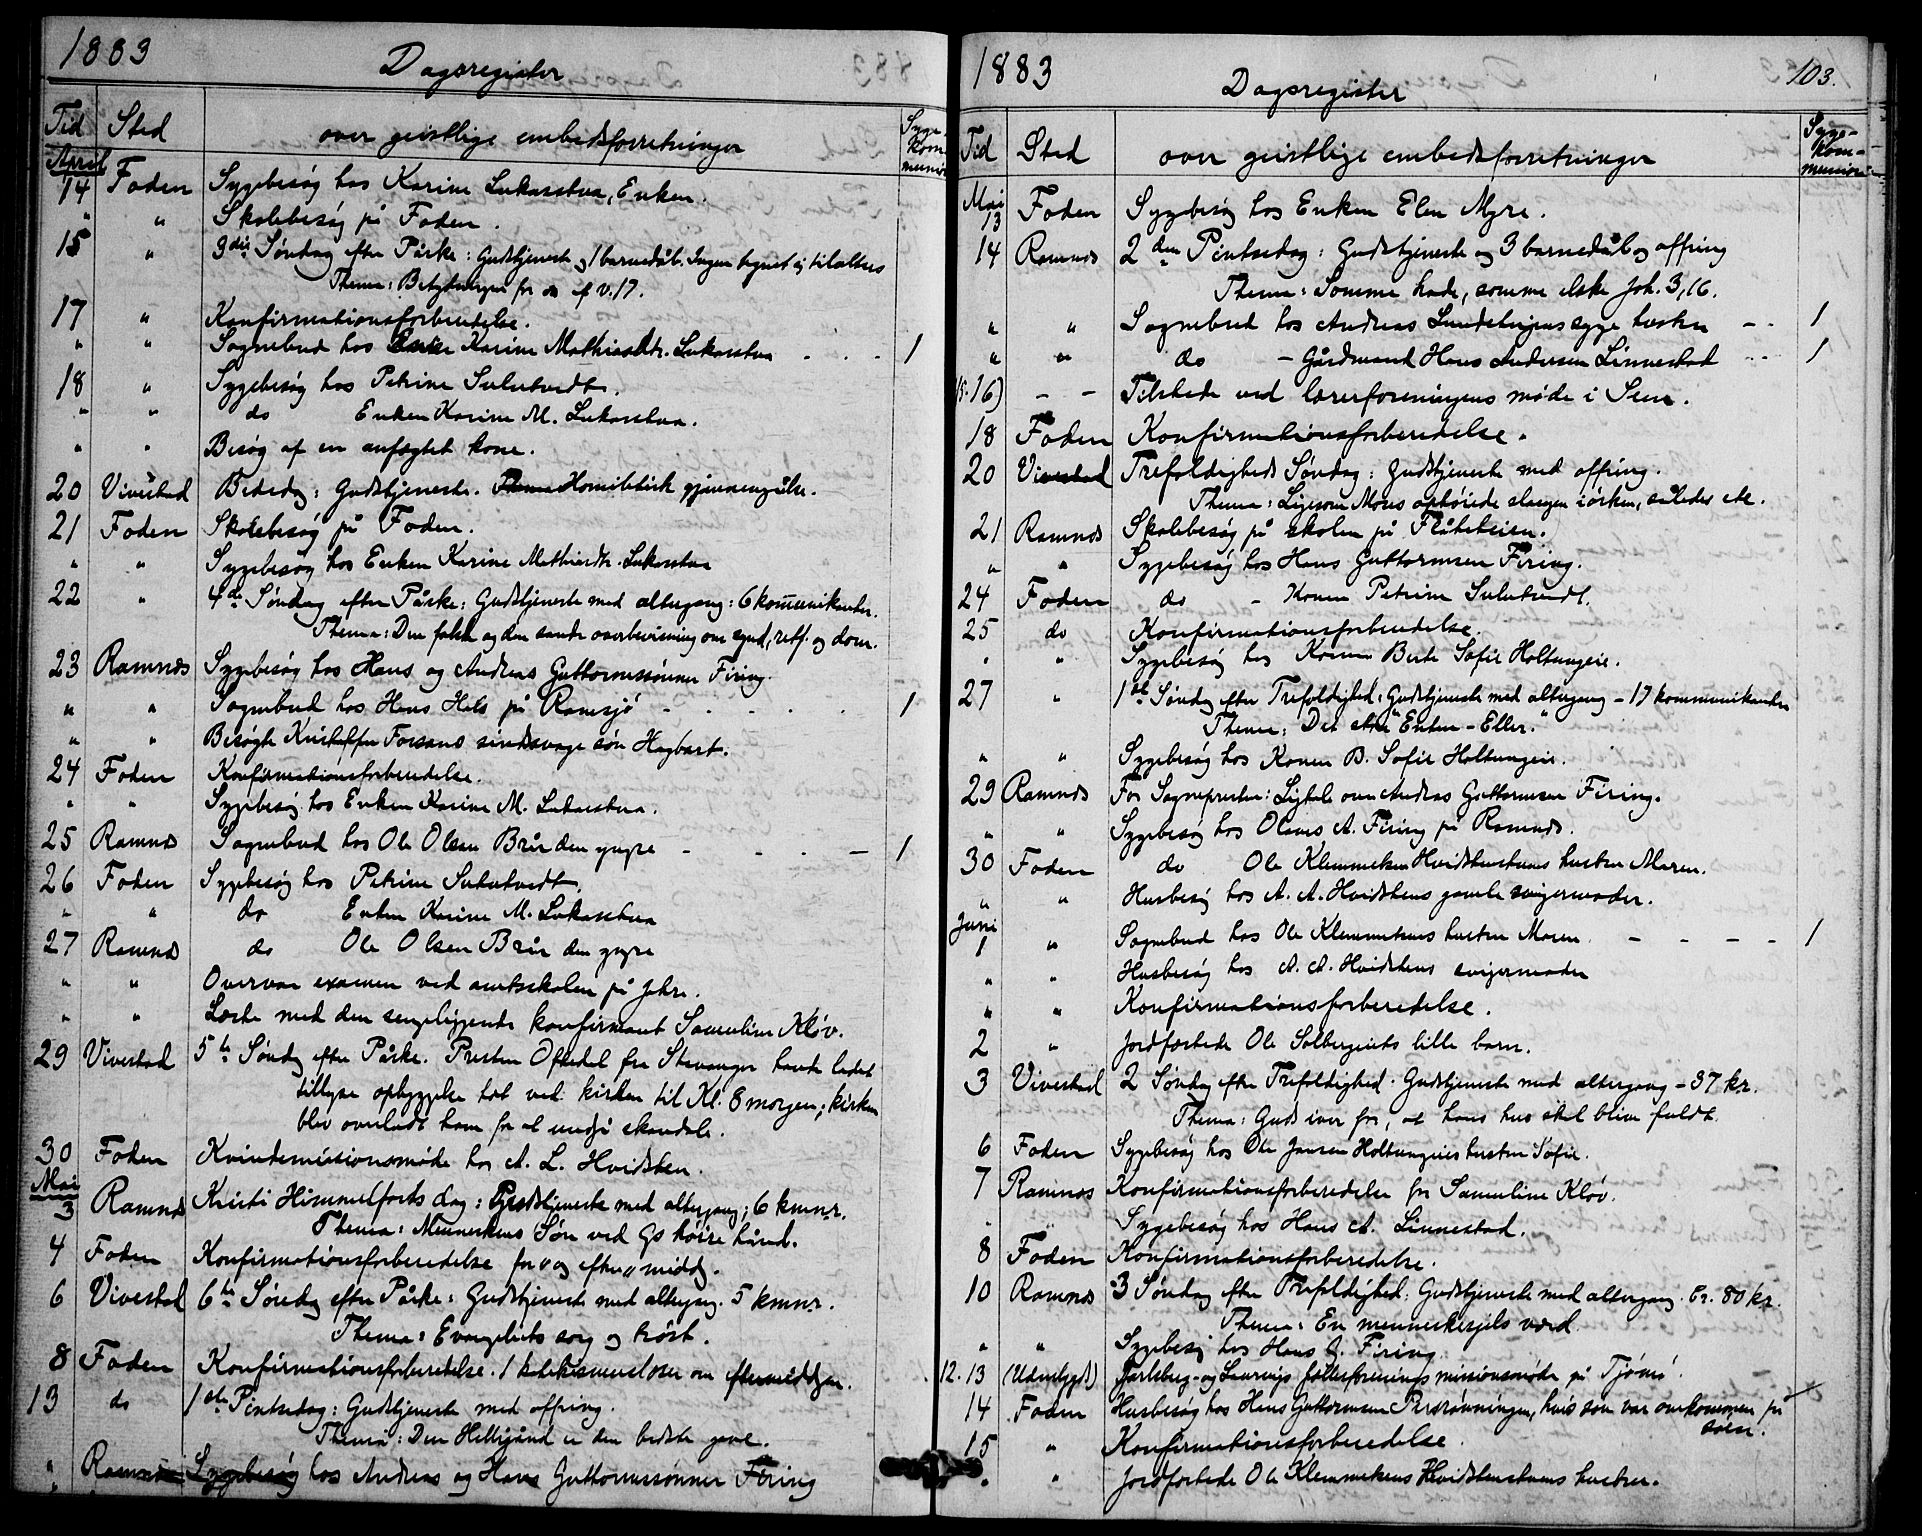 1883
Dagsregister
Tid Sted over geistlige embedsforretninger Syge-kommunion
April
14 Foden Sygebesøg hos Karine Lukasstua, Enken.
" " Skolebesøg på Foden.
15 " 3die Søndag efter Påske: Gudstjeneste og 1 barnedåb. Ingen tegnet sig til alters
Thema: Betydningen for os af v. 17.
17 " Konfirmationsforberedelse.
" " Sognebud hos Karine Mathiasdtr. Lukasstua - - - 1
18 " Sygebesøg hos Petrine Sulutvedt.
" " do Enken Karine M. Lukasstua.
" " Besøg af en anfægtet kone.
20 Vivestad Bededag: Gudstjeneste. Homiletisk gjennemgåelse.
21 Foden Skolebesøg på Foden.
" " Sygebesøg hos Enken Karine Mathiasdtr. Lukasstua
22 " 4de Søndag efter Påske: Gudstjeneste med altergang: 6 kommunikanter.
Thema: Den falske og den sande overbevisning om synd, retf. og dom.
23 Ramnes Sygebesøg hos Hans og Andreas Guttormssønner Firing.
" " Sognebud hos Hans Hals på Ramsjø - - - - 1
" " Besøgte Kristoffer Forsans sindssvage søn Hagbart.
24 Foden Konfirmationsforberedelse.
" " Sygebesøg hos Enken Karine M. Lukasstua.
25 Ramnes Sognebud hos Ole Olsen Brår den yngre - - - - 1
26 Foden Sygebesøg hos Petrine Sulutvedt.
" " do Enken Karine M. Lukasstua
27 Ramnes do Ole Olsen Brår den yngre
" " Overvar examen ved amtsskolen på Jahre.
" " Læste med den sengeliggende konfirmant Samuline Kløv.
29 Vivestad 5te Søndag efter Påske. Presten Oftedal fra Stavanger havde ladet
tillyse opbyggelse tæt ved kirken til Kl. 8 morgen; kirken
blev overladt ham for at undgå skandale.
30 Foden Kvindemissionsmøde hos A. L. Hvidsten.
Mai
3 Ramnes Kristi Himmelfarts dag: Gudstjeneste med altergang; 6 kmnr.
Thema: Menneskens Søn ved Gs høire hånd.
4 Foden Konfirmationsforberedelse for" og efter" midd.
6 Vivestad 6te Søndag efter Påske: Gudstjeneste med altergang. 5 kmnr.
Thema: Evangeliets sorg og trøst.
8 Foden Konfirmationsforberedelse. 1 om eftermiddagen.
13 do 1ste Pintsedag: Gudstjeneste med offring.
Thema: Den Helligånd er den bedste gave.
" Ramnes Sygebesøg hos Andreas og Hans Guttormssønner Firing
1883
Dagsregister
103.
Tid Sted over geistlige embedsforretninger Syge-kommunion
Mai
13 Foden Sygebesøg hos Enken Elen Myre.
14 Ramnes 2den Pintsedag: Gudstjeneste og 3 barnedåb og offring
Thema: Somme hade, somme elske Joh. 3,16.
" " Sognebud hos Andreas syge hustru - - 1
" " do - Gårdmand Hans Andersen Linnestad - - 1
(15. 16) - - Tilstede ved lærerforeningens møde i Sem.
18 Foden Konfirmationsforberedelse.
20 Vivestad Trefoldigheds Søndag: Gudstjeneste med offring.
Thema: Ligesom Moses ophøiede slangen i ørken, således etc.
21 Ramnes Skolebesøg på skolen på Flåteteien.
" " Sygebesøg hos Hans Guttormsen Firing.
24 Foden do - Konen Petrine Sulutvedt.
25 do Konfirmationsforberedelse.
" " Sygebesøg hos Konen Berte Sofie Holtungeie.
27 " 1ste Søndag efter Trefoldighed: Gudstjeneste med altergang - 17 kommunikanter
Thema: Det "Enten - Eller."
" " Sygebesøg hos Konen B. Sofie Holtungeie.
29 Ramnes For Sognepresten: Ligtale over Andreas Guttormsen Firing.
" " Sygebesøg hos Olaves A. Firing på Ramnes.
30 Foden do Ole Klemmetsen Hvidstenstuens hustru Maren.
" " Husbesøg hos A. A. Hvidstens gamle svigermoder.
Juni
1 " Sognebud hos Ole Klemmetsens hustru Maren. - - - - 1
" " Husbesøg hos A. A. Hvidstens svigermoder
" " Konfirmationsforberedelse.
2 " Jordfæstede Ole Solbergeiets lille barn.
3 Vivestad 2 Søndag efter Trefoldighed. Gudstjeneste med altergang - 37 kr.
Thema: Guds iver for, at hans hus skal blive fuldt.
6 Foden Sygebesøg hos Ole Jansen Holtungeies hustru Sofie.
7 Ramnes Konfirmationsforberedelse for Samuline Kløv.
" " Sygebesøg hos Hans A. Linnestad.
8 Foden Konfirmationsforberedelse.
10 Ramnes 3 Søndag efter Trefoldighed: Gudstjeneste med altergang. Ca. 80 kr.
Thema: En menneskesjels værd.
" " Sygebesøg hos Hans G. Firing.
12. 13 (Udenbygds) Jarlsberg- og Laurvigs fællesforenings missionsmøde på Tjømø.
14 Foden Husbesøg hos Hans Guttormsen hvis søn var omkommen på
søen.
15 " Konfirmationsforberedelse.
" " Jordfæstede Ole Klemmetsens Hvidstenstuens hustru.